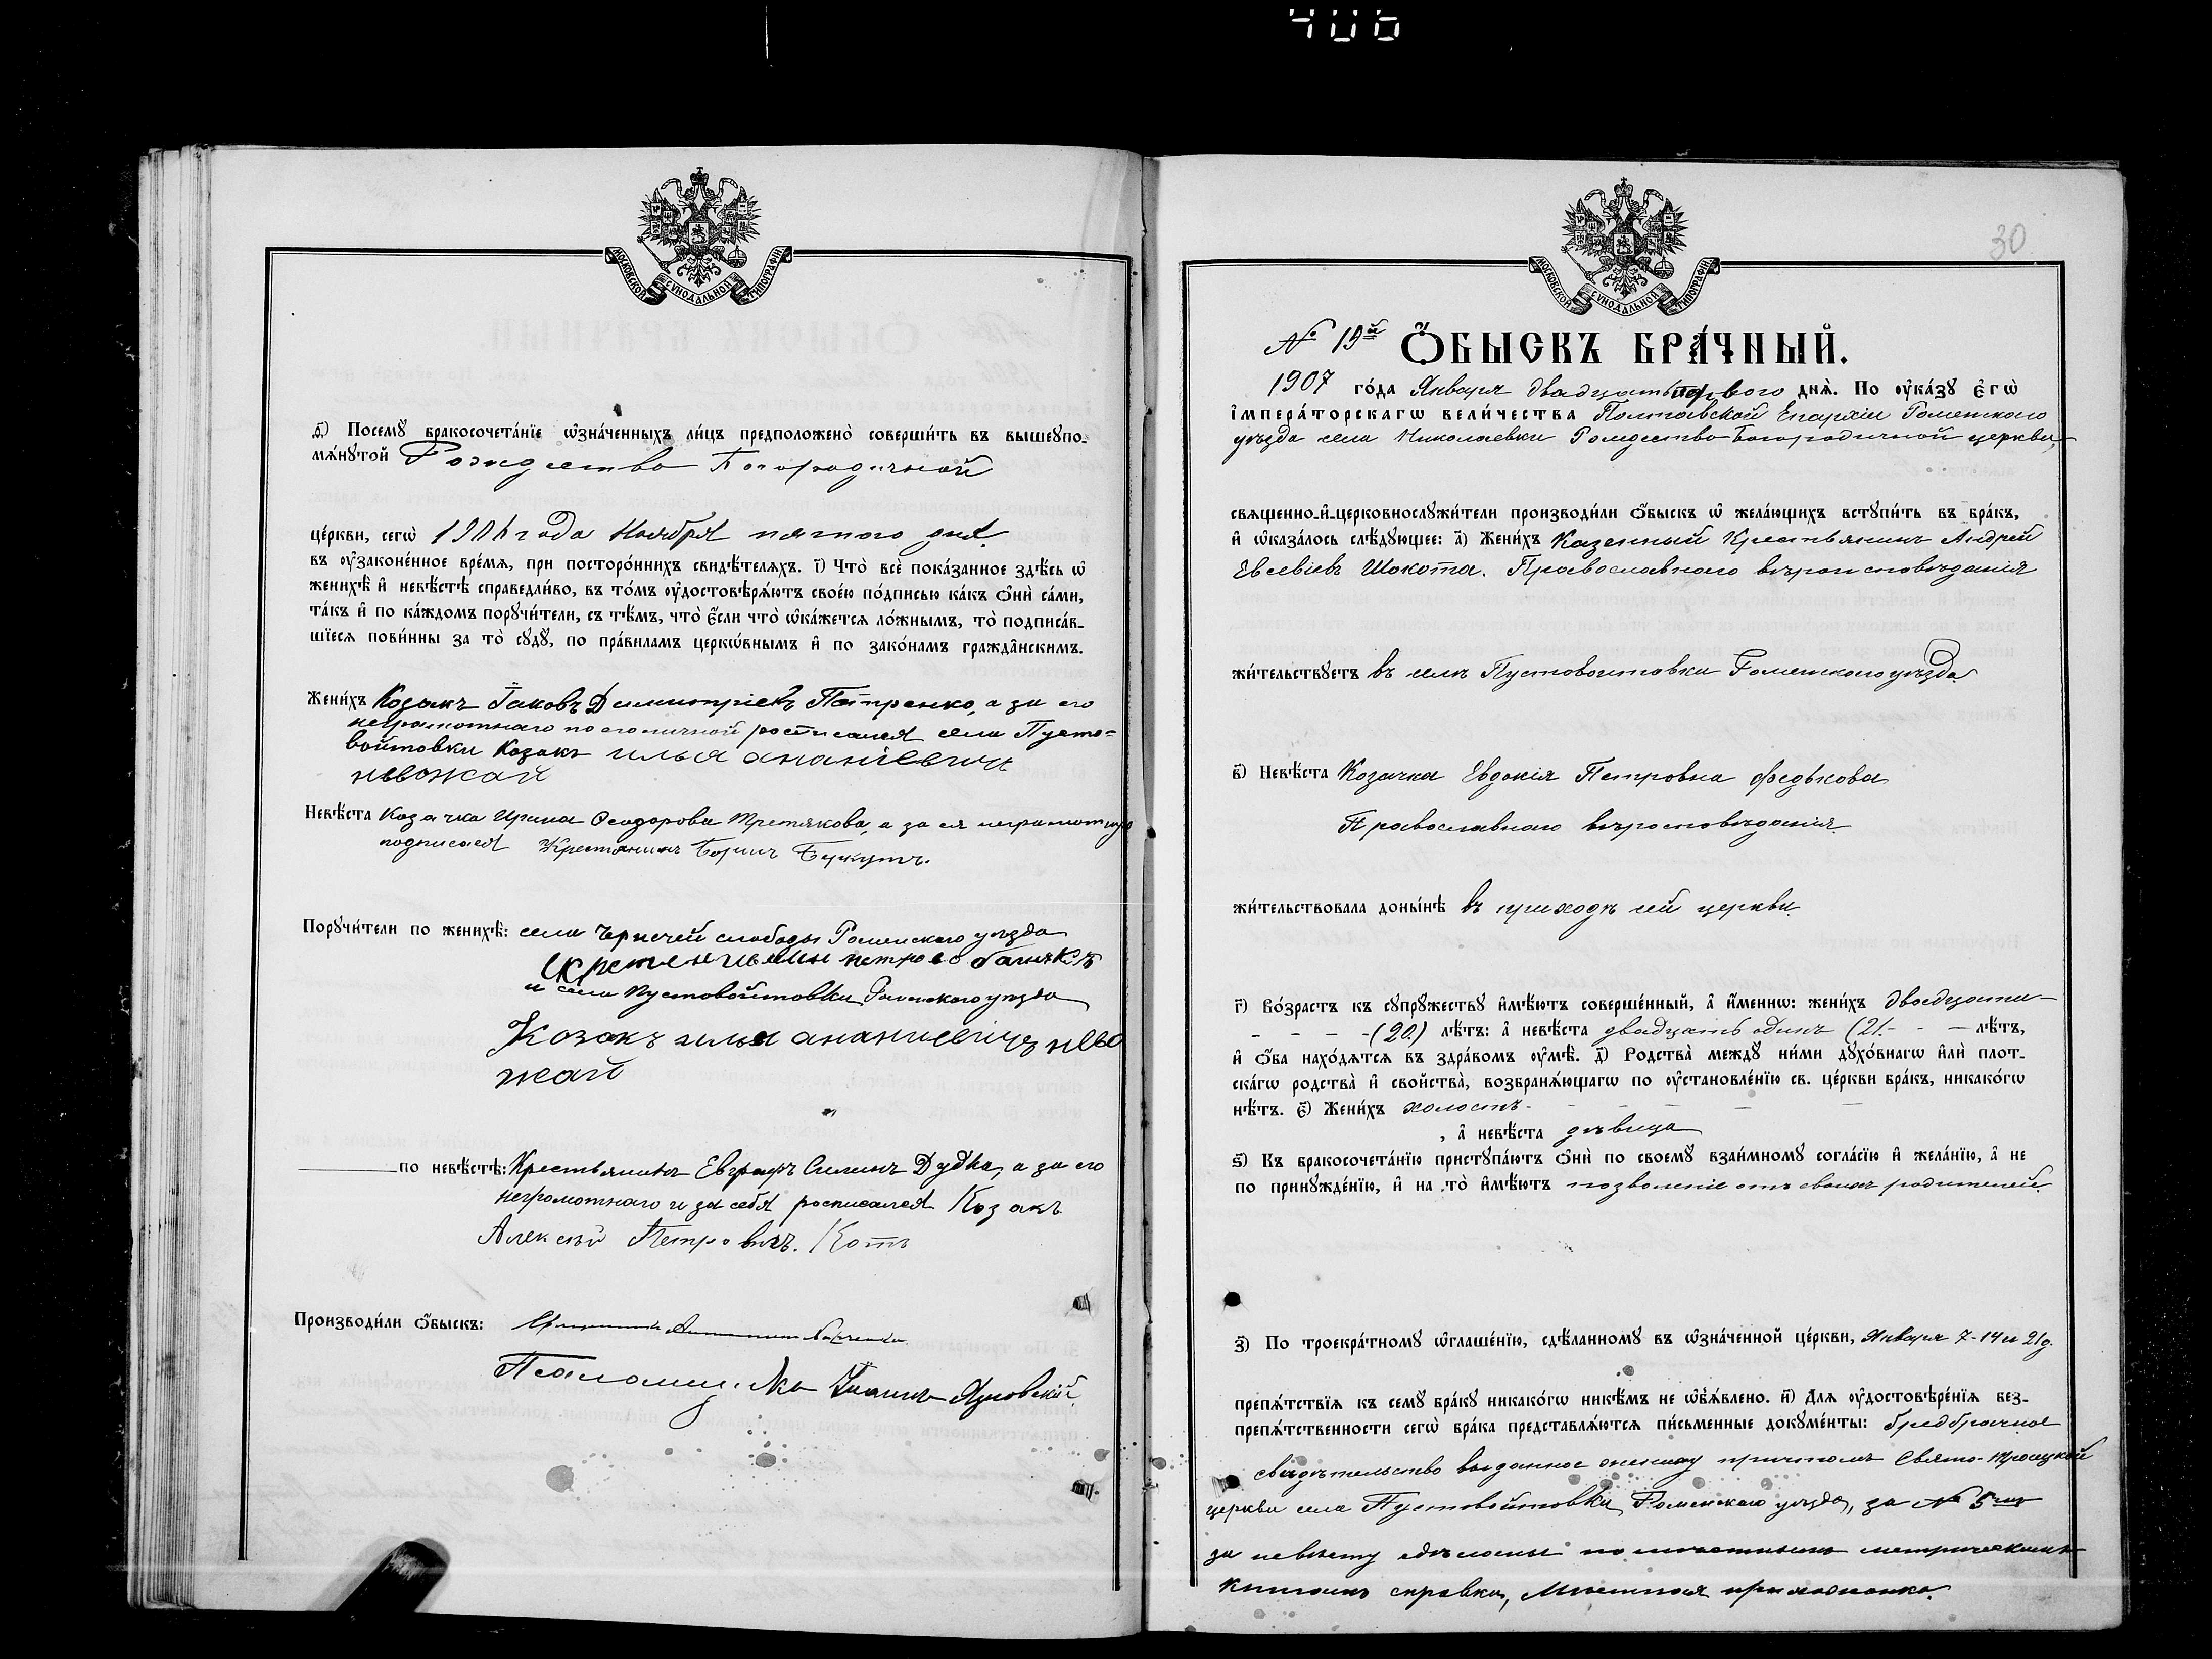 406
МОСКОВСКОЙ СѴНОДАЛЬНОЙ ТИПОГРАФІИ
ѳ҃) Посемꙋ бракосочета́нїе ѡ҆зна́ченныхъ ли́цъ предположено̀ соверши́ть въ вышеупо-
мѧ́нꙋтой Рождество Богородичной
це́ркви, сегѡ̀ 1906 года Ноября пятого дня
въ ᲂу҆законе́нное вре́мѧ, при посторо́ннихъ свидѣ́телѧхъ. і҃) Что̀ всѐ пока́занное здѣ́сь ѡ҆
женихѣ̀ и҆ невѣ́стѣ справедли́во, въ то́мъ ᲂу҆достовѣрѧ́ютъ свое́ю по́дписью ка́къ ѻ҆нѝ са́ми,
та́къ и҆ по ка́ждомъ порꙋчи́тели, съ тѣ́мъ, что̀ є҆́сли что̀ ѡ҆ка́жетсѧ ло́жнымъ, то̀ подписа́в-
шїесѧ пови́нны за то̀ сꙋдꙋ̀, по пра́виламъ церко́внымъ и҆ по зако́намъ гражда̂нскимъ.
Жени́хъ Козакъ Іаковъ Димитріевъ Петренко, а за его
неграмотнаго по его личной росписался села Пусто-
войтовки Козакъ илья ананіевич
невожай
Невѣ́ста Козачка Ирина Ѳеодорова Третякова, а за ея неграмотную
подписался Крестянинъ Борисъ
Порꙋчи́тели по женихѣ̀: села Чернечей слободы Роменскаго уѣзда
петро
и села Пустовойтовки Роменскаго уѣзда
Козакъ илья ананиевичъ нево
жай
по невѣ́стѣ: Крестьянинъ Евграфъ Силинъ Дудка, а за его
неграмотнаго и за себя росписался Козакъ
Алексѣй Петровичъ. Котъ
Производи́ли ѻ҆́быскъ:
Псаломщикъ Іоаннъ
30
МОСКОВСКОЙ СѴНОДАЛЬНОЙ ТИПОГРАФІИ
№ 19й ѺБЫСКЪ БРА́ЧНЫЙ.
1907 го́да Января двадцать первого днѧ̀. По ᲂу҆ка́зꙋ є҆гѡ̀
і҆мпера́торскагѡ вели́чества Полтавской Епархіи Роменского
уѣзда села Николаевки Рождество-Богородичной церкви,
свѧщенно-и҆-церковнослꙋжи́тели производи́ли ѻ҆́быскъ ѡ҆ жела́ющихъ встꙋпи́ть въ бра́къ,
и҆ ѡ҆каза́лось слѣ́дꙋющее: а҃) Жени́хъ Казенный Крестьянинъ Андрей
Евсевіевъ Шокота. Православнаго вѣроисповѣданія
жи́тельствꙋетъ въ селѣ Пустовоитовки Роменского уѣзда
в҃) Невѣ́ста Козачка Евдокія Петровна Федькова
Православнаго вѣроисповѣданія
жи́тельствовала доны́нѣ въ приходѣ сей церкви
г҃) Во́зрастъ къ сꙋпрꙋ́жествꙋ и҆мѣ́ютъ соверше́нный, а҆ и҆́меннѡ: жени́хъ двадцати
(20) лѣ́тъ: а҆ невѣ́ста двадцать одинъ (21- лѣ́тъ,
и҆ ѻ҆́ба нахо́дѧтсѧ въ здра́вомъ ᲂу҆мѣ̀. д҃) Родства̀ междꙋ ни́ми дꙋхо́внагѡ и҆лѝ плот-
ска́гѡ родства̀ и҆ свойства̀, возбранѧ́ющагѡ по ᲂу҆становле́нїю св. це́ркви бра́къ, никако́гѡ
нѣ́тъ. є҃) Жени́хъ холостъ
, а҆ невѣ́ста дѣвица
ѕ҃) Къ бракосочета́нїю пристꙋпа́ютъ ѻ҆нѝ по своемꙋ̀ взаи́мномꙋ согла́сїю и҆ жела́нїю, а҆ не
по принꙋжде́нїю, и҆ на то̀ и҆мѣ́ютъ позволеніе отъ своихъ родителей.
з҃) По троекра́тномꙋ ѡ҆глаше́нїю, сдѣ́ланномꙋ въ ѡ҆зна́ченной це́ркви, Января 7-14 и 21 д.
препѧ́тствїѧ къ семꙋ̀ бра́кꙋ никако́гѡ никѣ́мъ не ѡ҆б̾ѧ́влено. и҃) Длѧ ᲂу҆достовѣре́нїѧ без-
препѧ́тственности сегѡ̀ бра́ка представлѧ́ютсѧ пи́сьменные докꙋме́нты: предбрачное
свѣдѣтельство выданное жениху причтомъ Свято-Троицкой
церкви села Пустовойтовки, Роменскаго уѣзда, за № 5мъ
за невѣсту сдѣланы по мѣстнымъ метрическимъ
книгамъ справки, Мѣстная прихожанка.